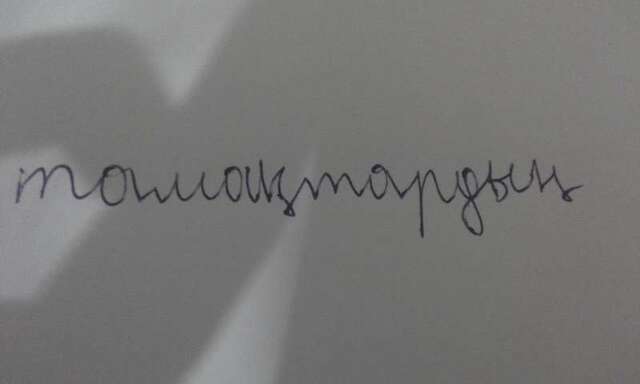 тамақтардың